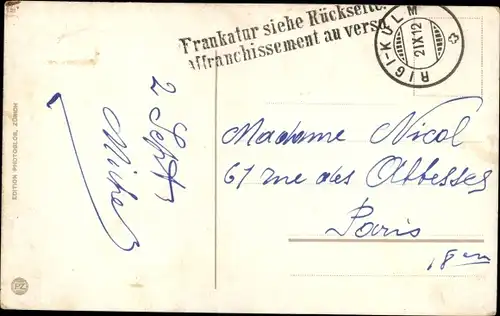 Frankatur siehe Rückseite.
affranchissement au verso
RIGI-KULM
2 IX 12
2 Sept
Madame Nicol
61 rue des Abbesses
Paris
18em
EDITION PHOTOGLOB, ZÜRICH
PZ